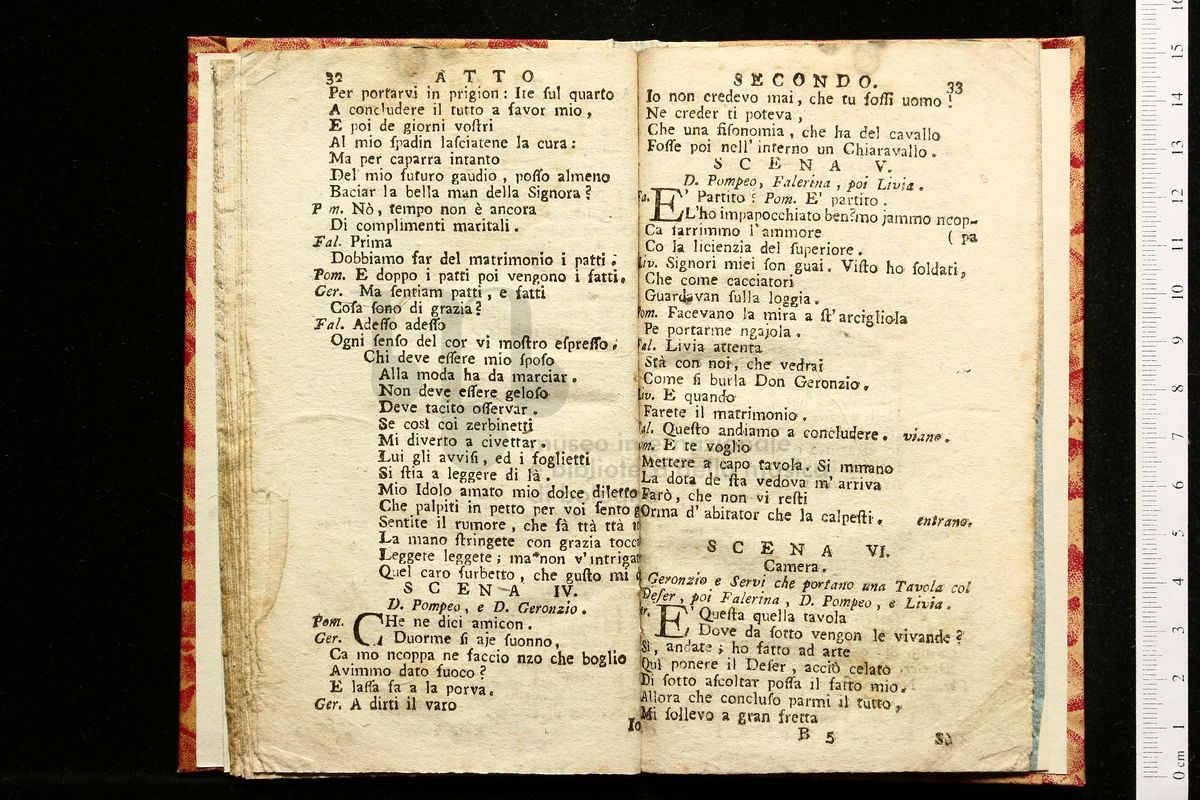 32 ATTO
Per portarvi in prigion: Ite ſul quarto
A concludere il tutto a favor mio,
E poi de giorni voſtri
Al mio ſpadin laſciatene la cura:
Ma per caparra intanto
Del mio futuro gaudio, poſſo almeno
Baciar la bella man della Signora?
P m. Nò, tempo non è ancora
Di complimenti maritali.
Fal. Prima
Dobbiamo far del matrimonio i patti.
Pom. E doppo i patti poi vengono i fatti.
Ger. Ma ſentiam patti, e fatti
Coſa ſono di grazia?
Fal. Adeſſo adeſſo
Ogni ſenſo del cor vi moſtro eſpreſſo.
Chi deve eſſere mio ſpoſo
Alla moda ha da marciar.
Non deve eſſere geloſo
Deve tacito oſſervar.
Se così coi zerbinetti
Mi diverto a civettar.
Lui gli avviſi, ed i foglietti
Si ſtia a leggere di là.
Mio Idolo amato mio dolce diletto
Che palpiti in petto per voi ſento
Sentite il rumore, che fà ttà ttà
La mano ſtringete con grazia tocc
Leggete leggete; ma non v'intrigat
Quel caro furbetto, che guſto mi
SCENA IV.
D. Pompeo, e D. Geronzio.
Pom. CHe ne dici amicon.
Ger. Duorme ſi aje ſuonno,
Ca mo ncoppa ne faccio nzo che boglio
Avimmo dato fuoco?
E laſſa fa a la porva.
Ger. A dirti il varo
Io
SECONDO. 33
Io non credevo mai, che tu foſſi uomo!
Ne creder ti poteva,
Che una fiſonomia, che ha del cavallo
Foſſe poi nell' interno un Chiaravallo.
SCENA V.
D. Pompeo, Falerina, poi Livia.
Fa. E' Partito? Pom. E' partito.
L'ho impapocchiato ben?mo jammo ncop-
Ca farrimmo l'ammore ( pa
Co la licienzia del ſuperiore.
Liv. Signori miei ſon guai. Viſto ho ſoldati,
Che come cacciatori
Guardavan ſulla loggia.
Pom. Facevano la mira a ſt'arcigliola
Pe portarme ngajola.
Fal. Livia attenta
Stà con noi, che vedrai
Come ſi burla Don Geronzio.
Liv. E quando
Farete il matrimonio.
Fal. Queſto andiamo a concludere. viano.
Pom. E te voglio
Mettere a capo tavola. Si mmano
La dota de ſta vedova m' arriva
Farò, che non vi reſti
Orma d' abitator che la calpeſti. entrano.
SCENA VI.
Camera.
Geronzio e Servi che portano una Tavola col
Deſer, poi Falerina, D. Pompeo, e Livia.
Ger. E' Queſta quella tavola
Dove da ſotto vengon le vivande?
Sì, andate; ho fatto ad arte
Quì ponere il Deſer, acciò celato
Di ſotto aſcoltar poſſa il fatto mio.
Allora che concluſo parmi il tutto,
Mi ſollevo a gran fretta
B 5 Sù